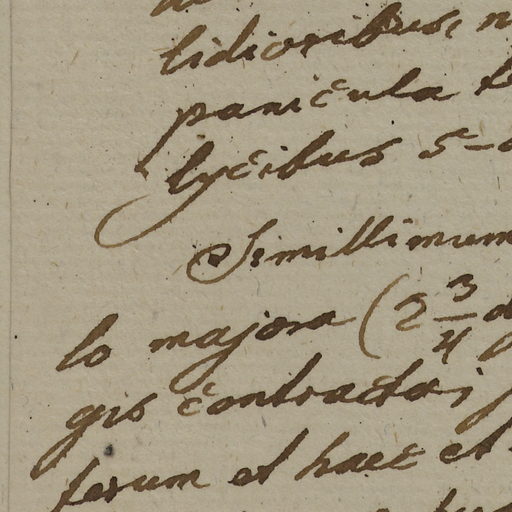 lidioribus, n
panicula
lycibus 5-
Simillimum
lo majora (2 3/4 d
gis contracta;
ferum et haec et